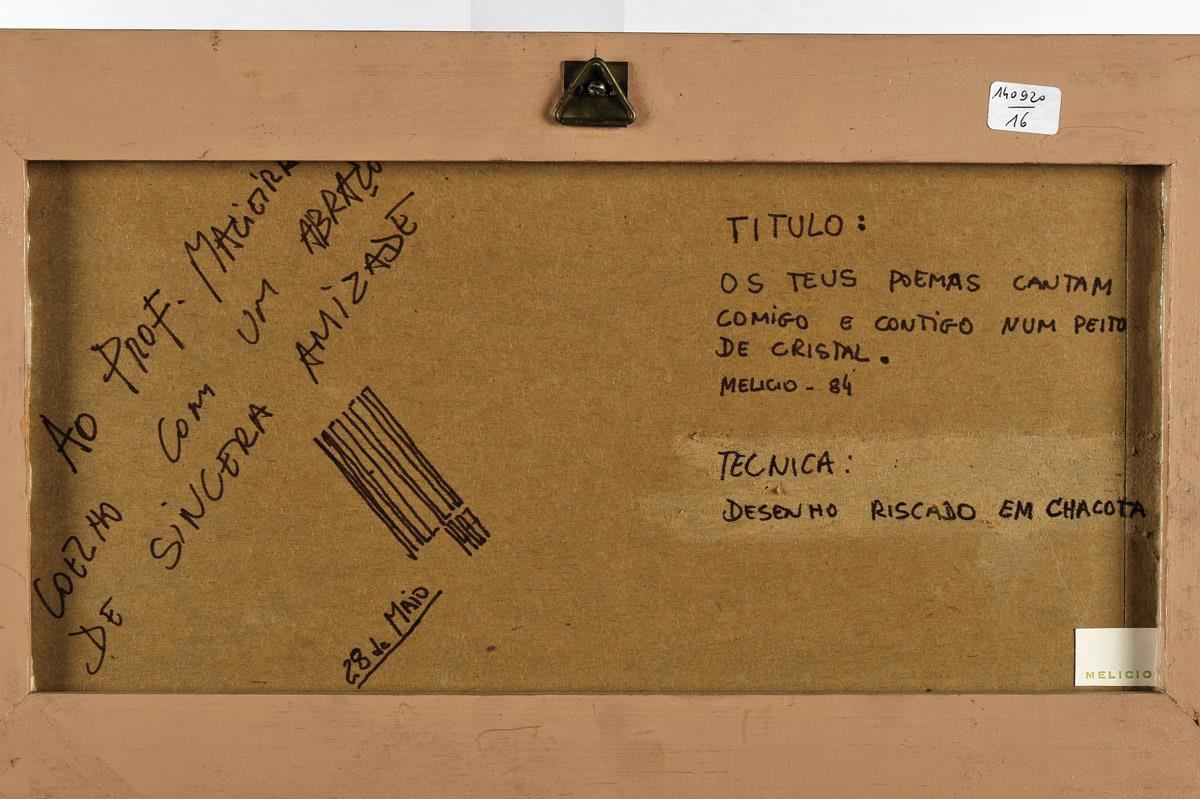 140920
16
AO PROF. MACIEIRA
COELHO COM UM ABRAÇO
DE SINCERA AMIZADE
1987
28 de MAIO
TITULO:
OS TEUS POEMAS CANTAM
COMIGO E CONTIGO NUM PEITO
DE CRISTAL.
MELICIO - 84
TECNICA:
DESENHO RISCADO EM CHACOTA
MELICIO